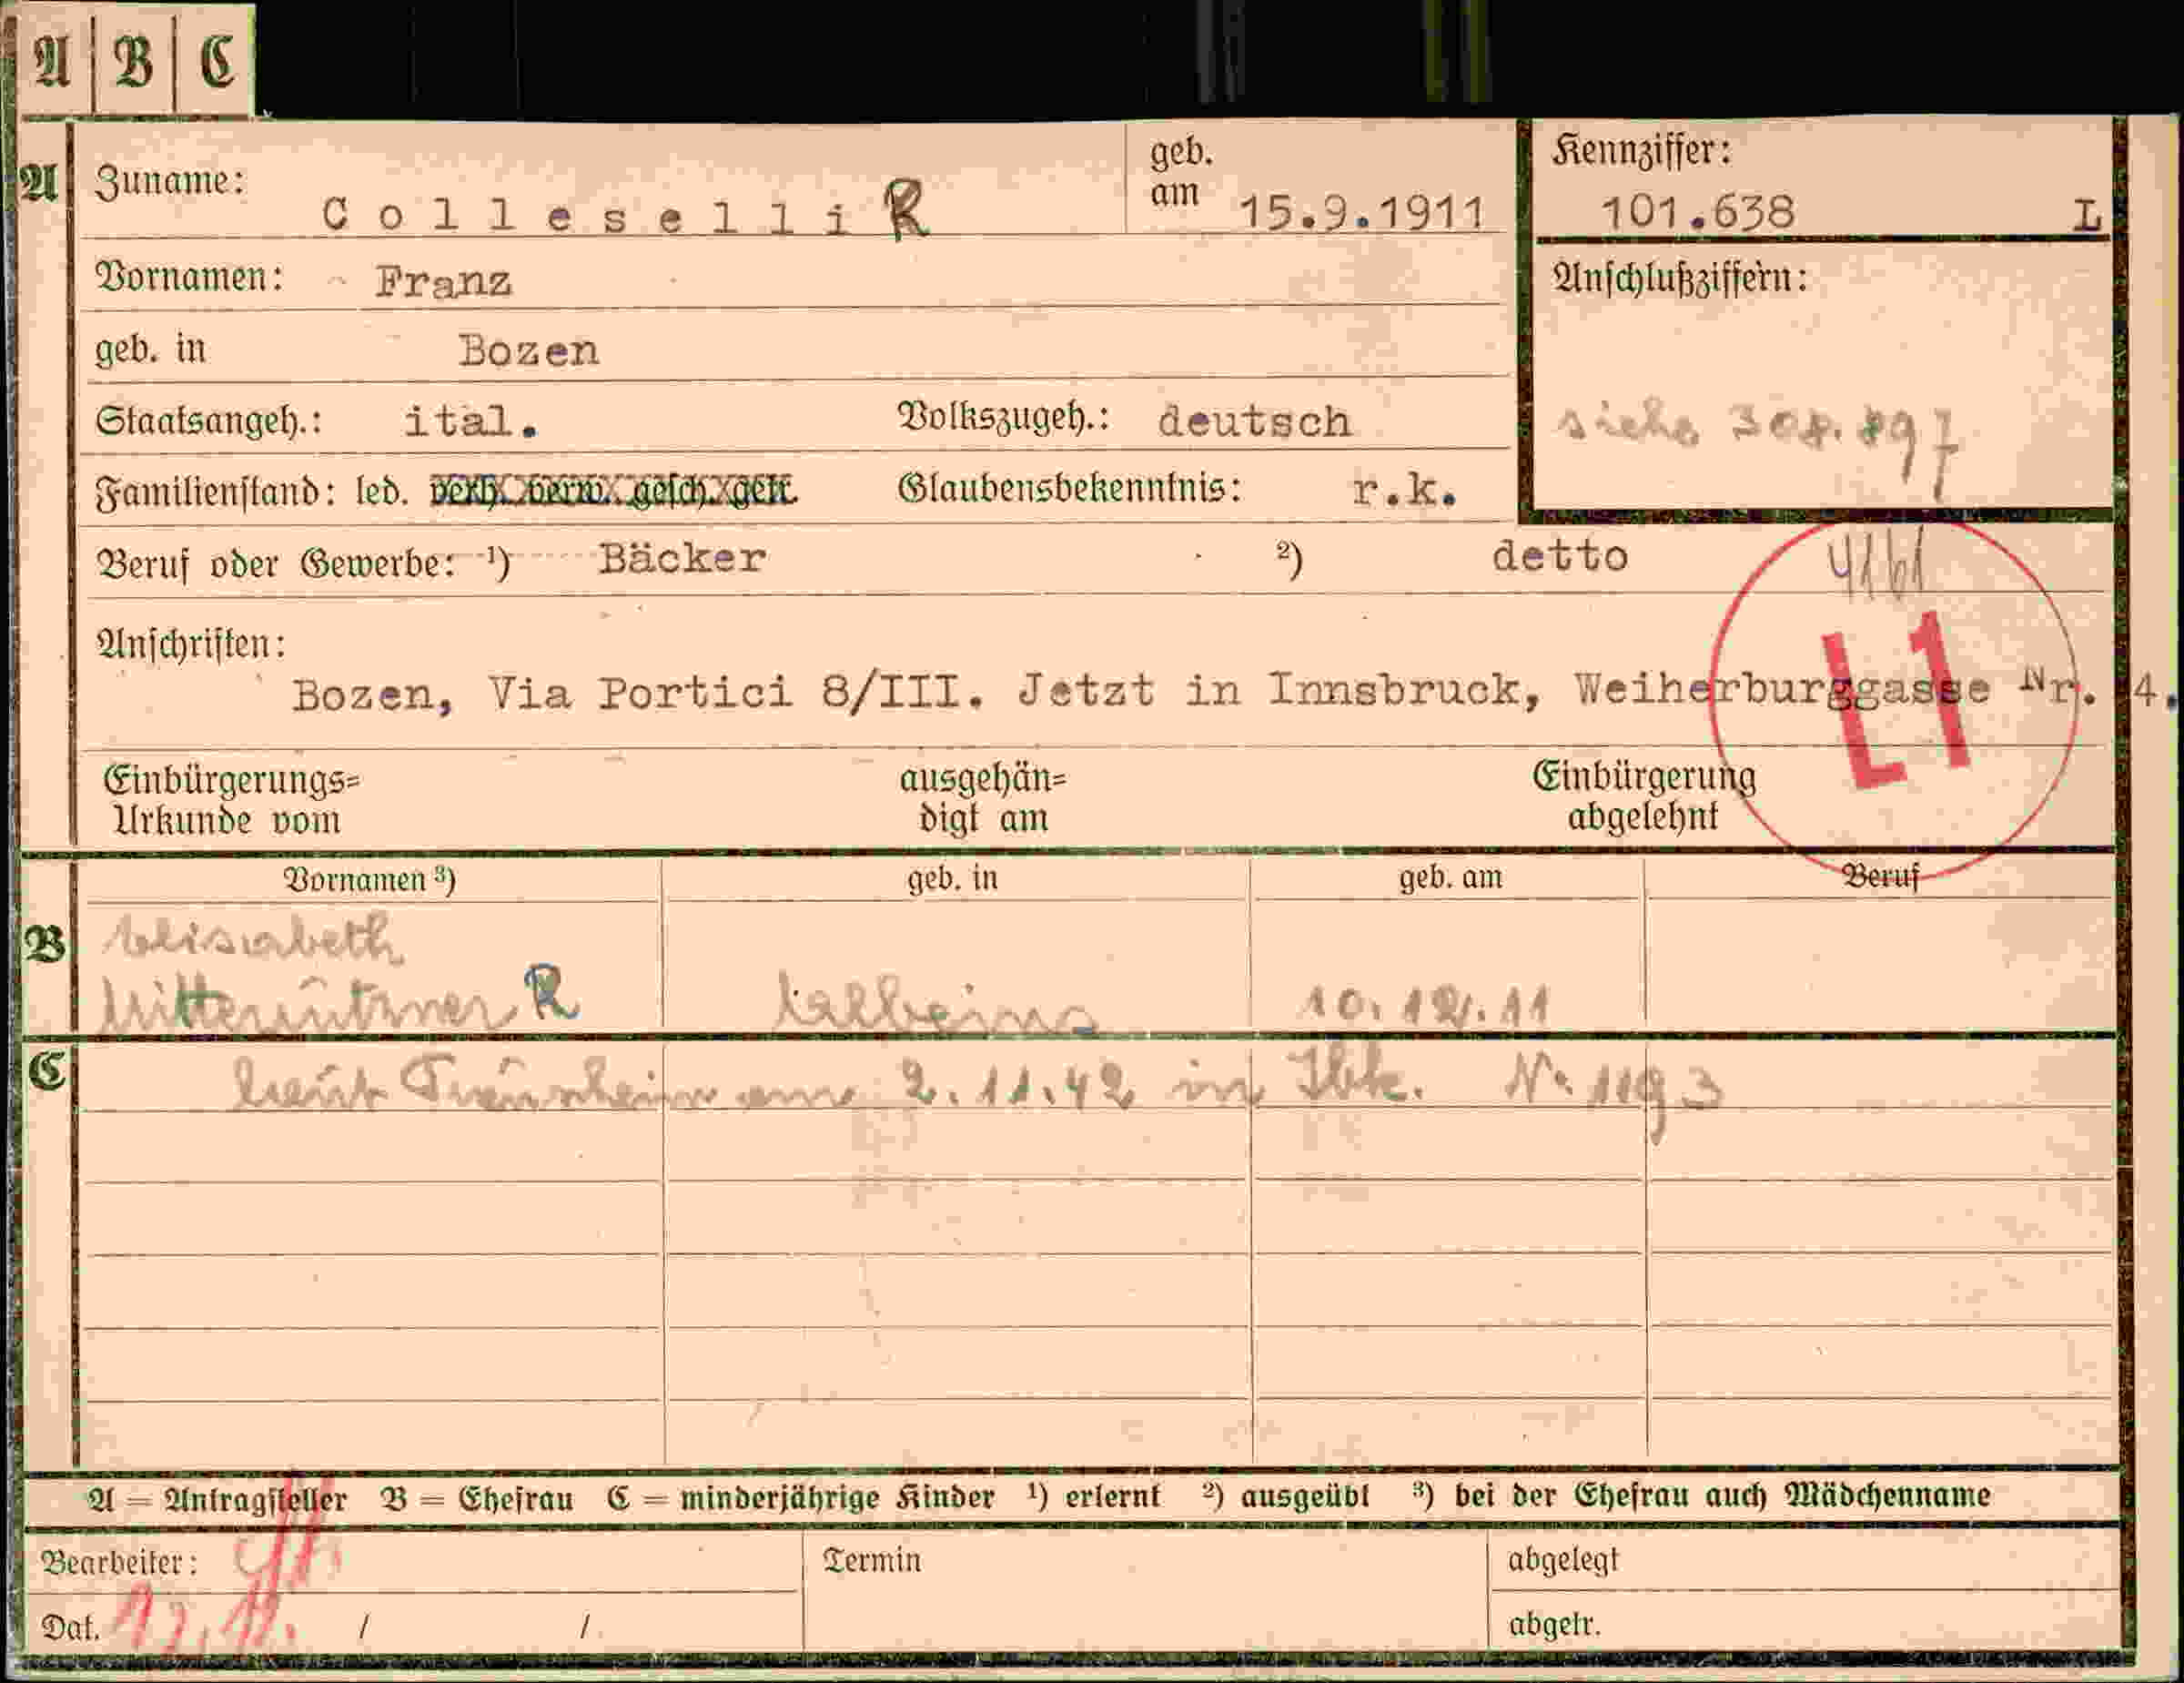 A B C
A Zuname: C o l l e s e l l i R geb. am 15.9.1911 Kennziffer: 101.638 L
Vornamen: Franz Anschlußziffern:
geb. in Bozen
Staatsangeh.: ital. Volkszugeh.: deutsch siehe
Familienstand: led. verh. verw. gesch. getr. Glaubensbekenntnis: r.k.
Beruf oder Gewerbe: ¹) Bäcker ²) detto
L1
Anschriften:
Bozen, Via Portici 8/III. Jetzt in Innsbruck, Weiherburggasse Nr. 4.
Einbürgerungs= ausgehän= Einbürgerung
Urkunde vom digt am abgelehnt
Vornamen ³) geb. in geb. am Beruf
B Elisabeth
Mitterrutzner R 10.12.11
C laut Trauschein am 2.11.42 in Ibk. Nr. 1193
A = Antragsteller B = Ehefrau C = minderjährige Kinder ¹) erlernt ²) ausgeübt ³) bei der Ehefrau auch Mädchenname
Bearbeiter: Termin abgelegt
Dat. / / abgetr.